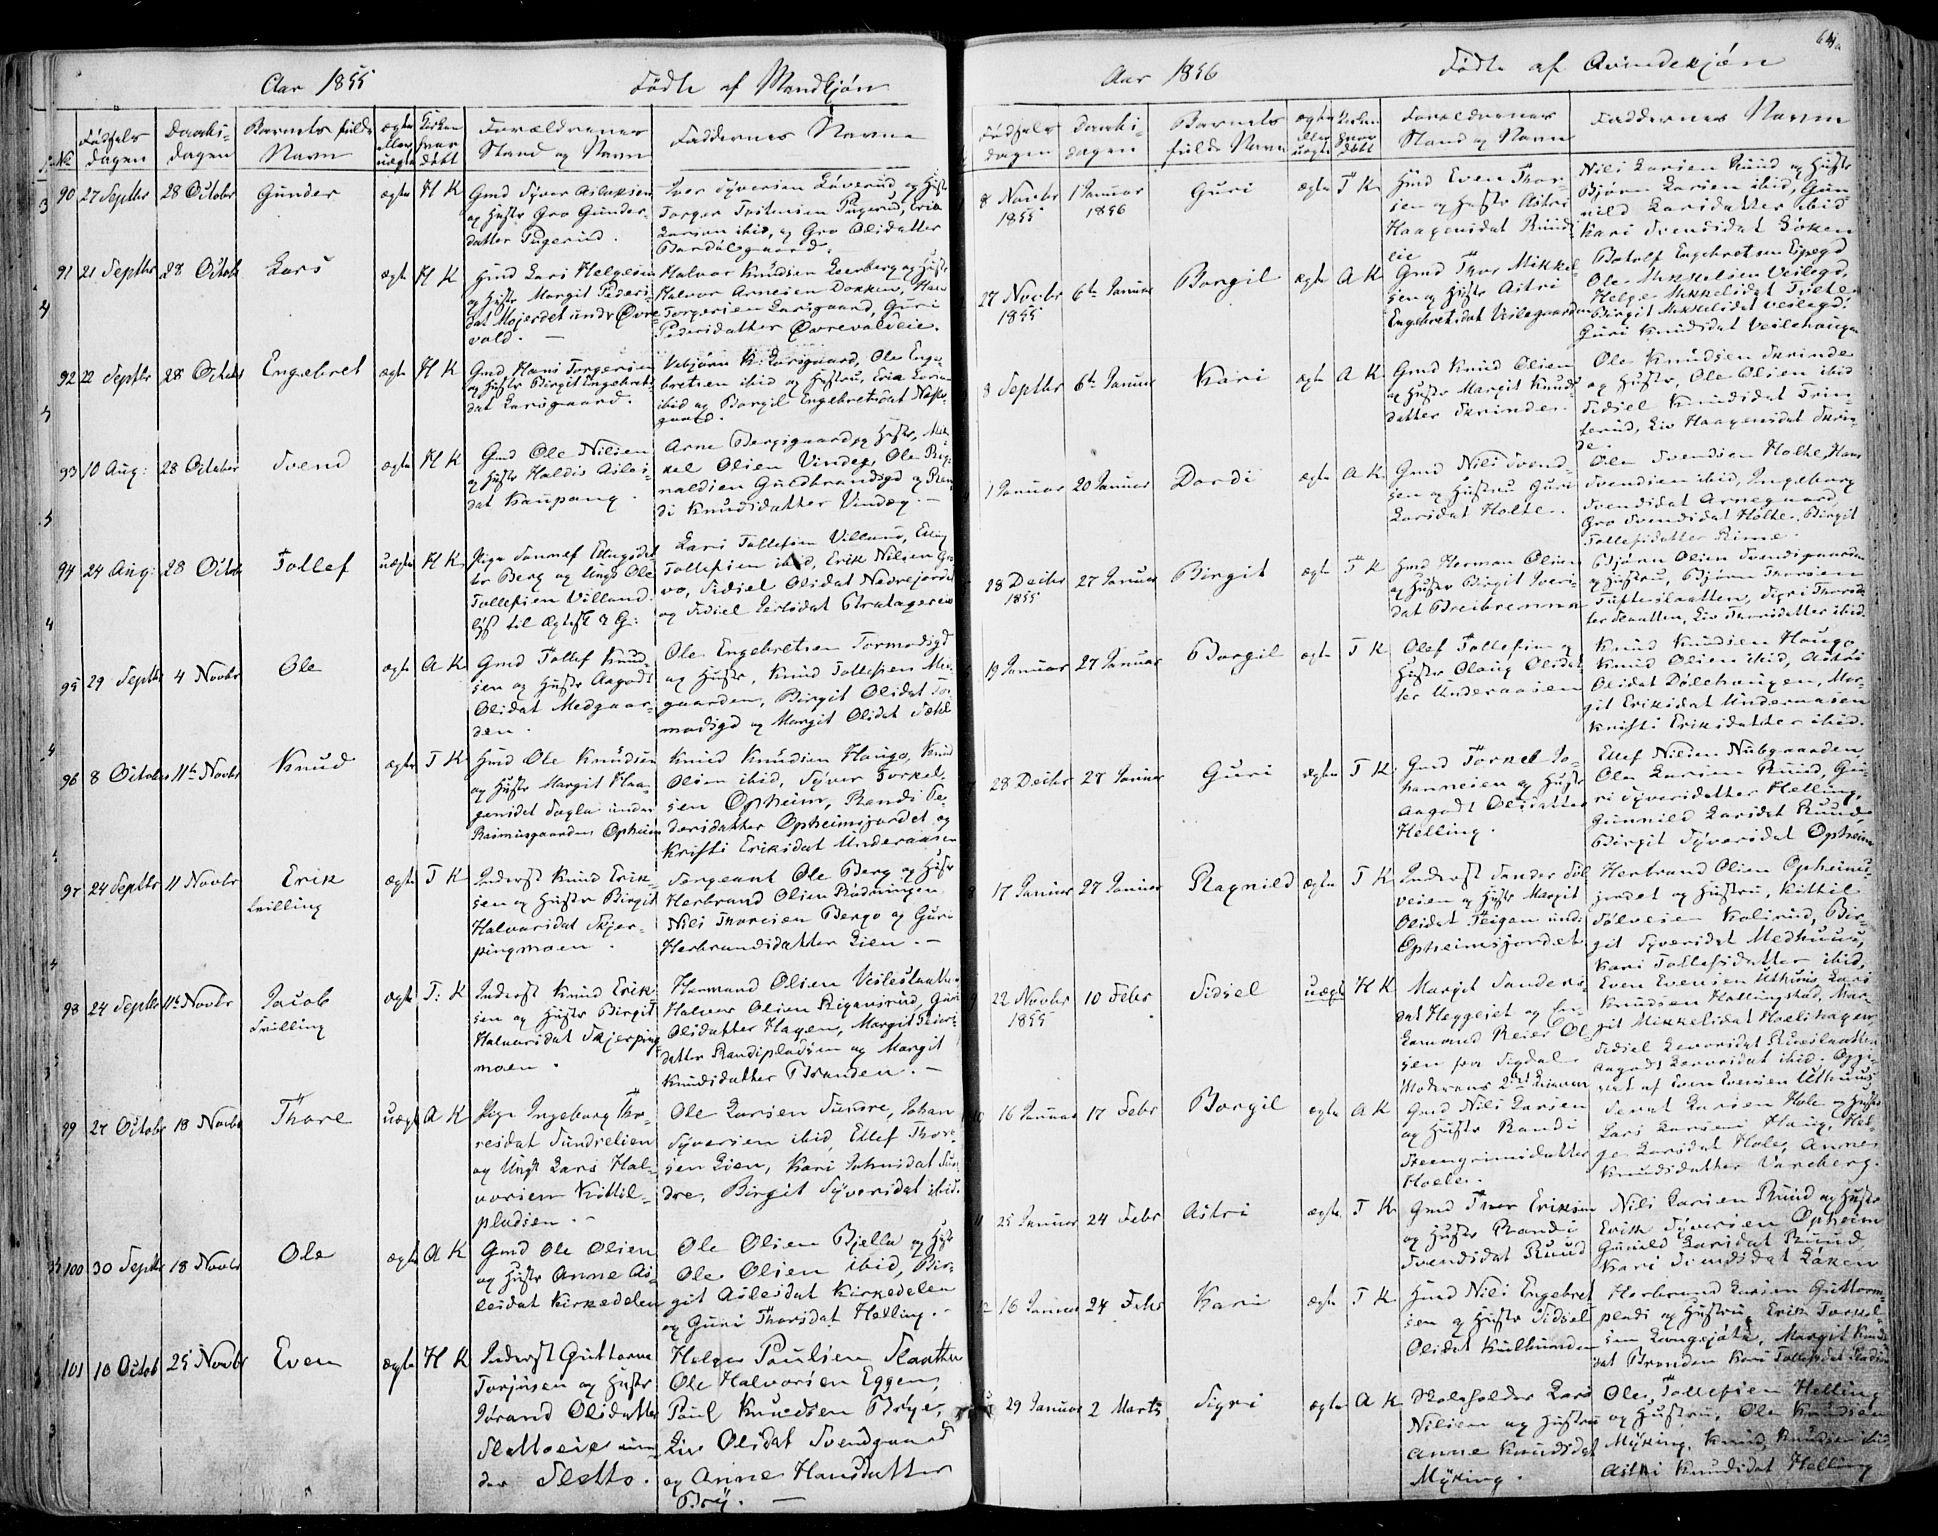 Aar 1855 Födte af Mandkjön
No. Födsels dagen Daabs-dagen Barnets fulde Navn ægte eller uægte Kirken hvor döbt Forældrenes Stand og Navn Faddernes Navne
90 27 Septbr 28 Octobr Gunder ægte H K
Gmd Syver Aslaksen
og Hustr Gro Gunders
datter Tügerud.
Iver Syversen Löverud og Hustr
Torger Tostensen Tügerud, Erik
Larsen ibid, og Gro Olsdatter
Bardalsgaard.
91 21 Septbr 28 Octob Lars ægte H K
Hmd Lars Helgesen
og Hustr Margit Peders
dat Mojordet undr Övre
vold. –
Halvor Knudsen Leerberg og Hustr
Halvor Arnesen Dokken,
Torgersen Larsgaard, Guri
Pedersdatter Övrevoldeie.
92 22 Septbr 28 Octobr Engebret ægte H K
Gmd, Hans Torgersen
og Hustr Birgit Engebrets
dat Larsgaard.
Vebjörn K. Larsgaard, Ole Enge-
bretsen ibid og Hustru, Erik Larsen
ibid og Borgil Engebretsdat Næs-
gaard.
93 10 Aug: 28 October Svend ægte H K
Gmd Ole Nilsen
og Hustr Haldis Asles
dat Kaupang.
Arne Bergsgaard og Hustr, Mik
kel Olsen Vindeg, Ole Rag-
naldsen Gudbrandsgd og Ran
di Knudsdatter Vindeg. –
94 24 Aug: 28 Octob Tollef uægte H K
Pige Sannef Ellingsdat
ter Berg og Ungk Ole
Tollefsen Villand.
Lars Tollefsen Villand, Elling
Tollefsen ibid, Erik Nilsen Gro
vo, Sidsel Olsdat Nedrejordet
og Sidsel Larsdat
95 29 Septbr 4 Novbr Ole ægte A K
Gmd Tollef Knud-
sen og Hustr Aagodt
Olsdat Medgaar-
den.
Ole Engebretsen Tormodsgd
og Hustr, Knud Tollefsen Me
gaarden, Birgit Olsdat Tor
modsgd og Margit Olsdat
96 8 Octobr 11te Novbr Knud ægte T K
Hmd Ole Knudsen
og Hustr Margit Haa-
gensdat Sagla under
Rasmusgaarden Opheim
Knud Knudsen Haugo, Knud
Olsen ibid, Syver Torkel-
sen Opheim, Randi Pe-
dersdatter Opheimsjordet og
Kristi Eriksdat Underaasen
97 24 Septbr 11 Novbr Erik
Tvilling ægte T K
Inderst Knud Erik-
sen og Hustr Birgit
Halvorsdat Skjer-
pingmoen.
Sergeant Ole Berg og Hustr
Herbrand Olsen Rudningen
Nils Thoresen Bergo og Guri
Herbrandsdatter Lien. –
98 24 Septbr 11te Novbr Jacob
Tvilling ægte T: K
Inderst Knud Erik
sen og Hustr Birgit
Halvorsdat Skjerping
moen.
Hermand Olsen Veslesl
Halvor Olsen Rigansrud, Guri
Olsdatter Hagen, Margit
datter Randiplodsen og Margit
Knudsdatter Branden. –
99 27 Octobr 18 Novbr Thore uægte A K
Pige Ingeborg Tho-
resdat Sundrelien
og Ungk Lars Hal-
vorsen Kittil-
pladsen. –
Ole Larsen Sundre, Johan
Syversen ibid, Ellef Thor-
sen Lien, Kari Johnsdat Sun
dre, Birgit Syversdat ibid.
100 30 Septbr 18 Novbr Ole ægte A K
Gmd Ole Olsen
og Hustr Anne As-
lesdat Kirkedelen
Ole Olsen Bjella og Hustr
Ole Olsen ibid, Bir-
git Aslesdat Kirkedelen
og Guri Thorsdat Helling. –
101 10 Octob 25 Novbr Even ægte H K
Inderst Guttorm
Torjusen og Hustr
Jörand Olsdatter
Slettoeie un
der Sletto.
Helge Paulsen
Ole Halvorsen Eggen,
Paul Knudsen Brye,
Liv Olsdat Svendgaard
og Anne Hansdatter
Bröy. –
Aar 1856 Födte af Qvindekjön 64a
Födsels dagen Daabs-dagen Barnets fulde Navn ægte eller uægte Kirken hvor döbt Forældrenes Stand og Navn Faddernes Navne
8 Novbr 1855 1 Januar 1856 Guri ægte T K
Hmd Even Thor-
sen og Hustr Astri
Haagensdat Ruud-
eie
Nils Larsen Ruud og Hustr
Björn Larsen ibid, Gun
nild Larsdatter ibid
Kari Svendsdat Löken
27 Novbr 1855 6te Januar Borgil ægte A K
Gmd Thor Mikkel
sen og Hustr Astri
Engebretsdat Veslegaarden
Botolf Engebretsen
Ole Mikkelsen Veslegd,
Helge Mikkelsdat
Birgit Mikkelsdat Veslegd.
Guri Knudsdat Veslehaugen
8 Septbr 6te Januar Kari ægte A K
Gmd Knud Olsen
og Hustr Margit Knuds
datter Skrinde.
Ole Knudsen Skrinde
og Hustr, Ole Olsen ibid
Sidsel Knudsdat Trin
terud, Liv Haagensdat Skrin
de.
1 Januar 20 Januar Dordi ægte A K
Gmd Nils Svend-
sen og Hustru Guri
Larsdat Holte.
Ole Svendsen Holte, Hans
Svendsen ibid, Ingeborg
Svendsdat Arnegaard,
Gro Svendsdat Holte, Birgit
Tollefsdatter
28 Decbr 1855 27 Januar Birgit ægte T K
Hmd Herman Olsen
og Hustr Birgit Ivers
dat Breibrenna
Björn Olsen Svendsgaarden
og Hustru, Björn Thorsen
Tutteslaatten, Sigri Thorsdat
ter Slaatten, Liv Thorsdatter ibid.
19 Januar 27 Januar Borgil ægte T K
Olef Tollefsen og
Hustr Olaug Olsdat
ter Underaasen
Knud Knudsen Haugo,
Knud Olsen ibid, Astri
Olsdat Dölehaugen, Mar-
git Eriksdat Underaasen
Kristi Eriksdatter ibid.
28 Decbr 28 Januar Guri ægte T K
Gmd Torkel Jo-
hannesen og Hustr
Aagodt Olsdatter
Helling.
Ellef Nilsen Nubgaarden
Ole Larsen Ruud, Gu
ri Syversdatter Helling,
Gunnild Larsdat Ruud,
Birgit Syversdat Opheim
17 Januar 27 Januar Ragnild ægte T K
Inderst Sander Söl
veien og Hustr Margit
Olsdat Teigen undr
Opheimsjordet
Herbrand Olsen Opheims
jordet og Hustru, Kittil
Sölveien Kolsrud, Bir-
git Syversdat Medhuus,
Kari Tollefsdatter ibid,
22 Novbr 1855 10 Febr Sidsel uægte H K
Margit Sanders-
dat Heggeiet og
Gamand Reier Ol-
sen fra Sigdal
Moderens 2det
Even Evensen Uthuus, Lars
Knudsen Hallingstad, Mar-
git Mikkelsdat Hoelshagen
Sidsel
Aagodt
af Even Evensen Uthuus
16 Januar 17 Febr Borgil ægte A K
Gmd Nils Larsen
og Hustr Randi
Steengrimsdatter
Hoele.
Svend Larsen Hole og Hustr
Lars Larsen Haug, Hel-
ge Larsdat Hole, Anne
Knudsdatter Vareberg.
11 25 Januar 24 Febr Astri ægte T K
Gmd Thor Eriksen
og Hustr Randi
Svendsdat Ruud
Nils Larsen Ruud og Hustr
Erik Syversen Opheim
Gunild Larsdat Ruud
Kari Svendsdat Löken
12 16 Januar 24 Febr Kari ægte T K
Hmd Nils Engebret
sen og Hustr Sidsel
Olsdat Kulbunden
Herbrand Larsen Guttorm-
plads og Hustru, Erik Torkel-
sen Langesjöte, Margit Knuds
dat Branden Kari Tollefsdat
29 Januar 2 Marts Sigri ægte A K
Skoleholder Lars
Nilsen og Hustru
Anne Knudsdat
Myking.
Ole Tollefsen Helling
og Hustru, Ole Knudsen
Myking, Knud Knudsen ibid,
Astri Knudsdat Helling